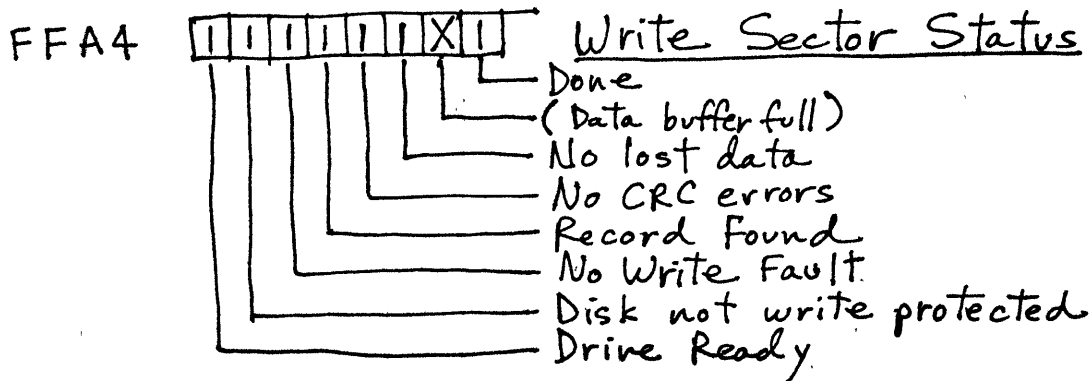 FFA4 1 1 1 1 1 1 X 1 Write Sector Status
Done
(Data buffer full)
No lost data
No CRC errors
Record Found
No Write Fault
Disk not write protected
Drive Ready